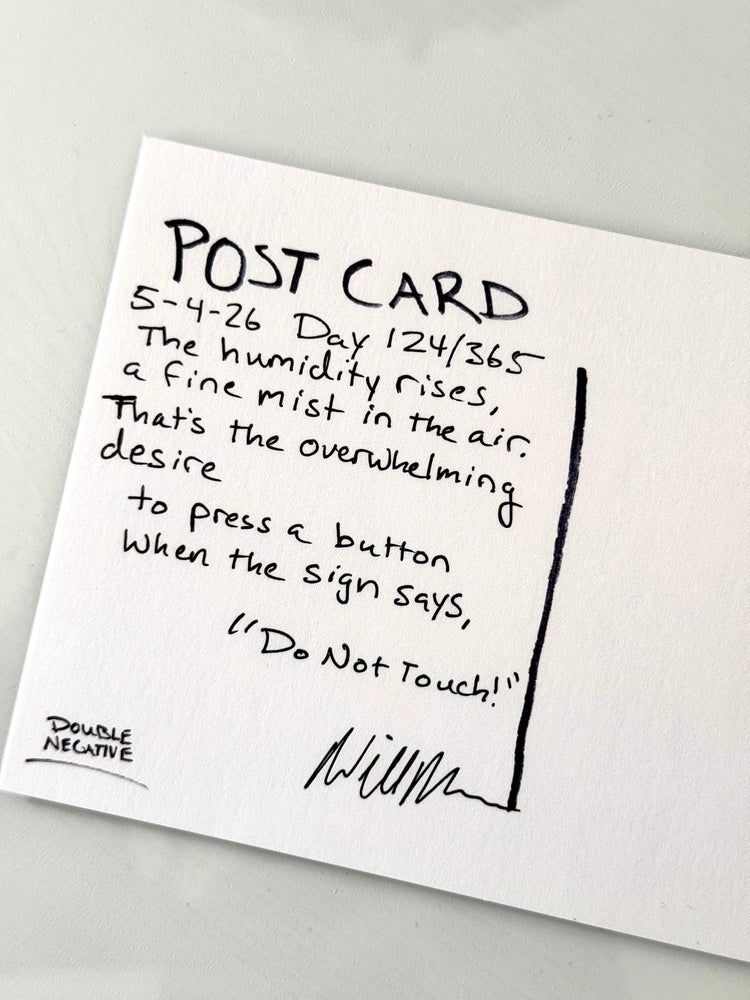 POST CARD
5-4-26 Day 124/365
The humidity rises,
a fine mist in the air.
That's the overwhelming
desire
to press a button
when the sign says,
"Do Not Touch!"
DOUBLE
NEGATIVE